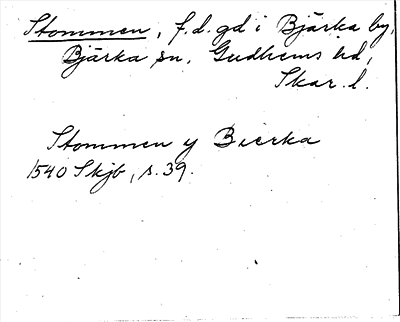 Stommen, f.d. gd i Bjärka by,
Bjärka sn, Gudhems hd,
Skar. l.
Stommen y Bierka
1540 Skjb, s. 39.